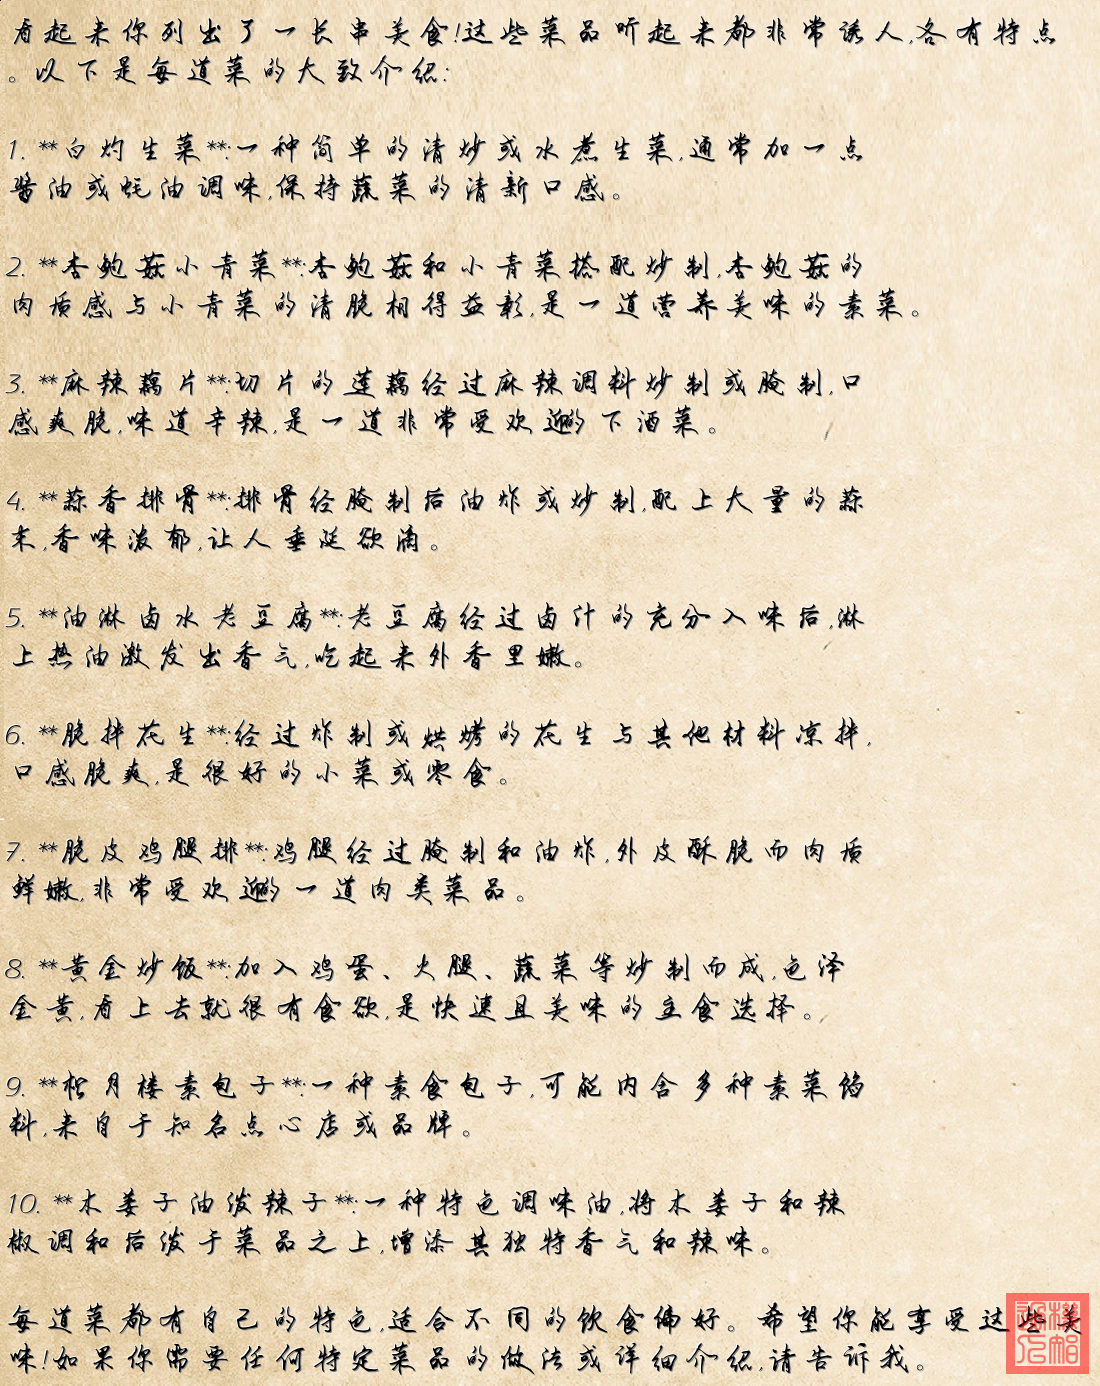 看起来你列出了一长串美食!这些菜品听起来都非常诱人,各有特点
。以下是每道菜的大致介绍:
1. **白灼生菜**:一种简单的清炒或水煮生菜,通常加一点
酱油或蚝油调味,保持蔬菜的清新口感。
2. **杏鲍菇小青菜**:杏鲍菇和小青菜搭配炒制,杏鲍菇的
肉质感与小青菜的清脆相得益彰,是一道营养美味的素菜。
3. **麻辣藕片**:切片的莲藕经过麻辣调料炒制或腌制,口
感爽脆,味道辛辣,是一道非常受欢迎的下酒菜。
4. **蒜香排骨**:排骨经腌制后油炸或炒制,配上大量的蒜
末,香味浓郁,让人垂涎欲滴。
5. **油淋卤水老豆腐**:老豆腐经过卤汁的充分入味后,淋
上热油激发出香气,吃起来外香里嫩。
6. **脆拌花生**:经过炸制或烘烤的花生与其他材料凉拌,
口感脆爽,是很好的小菜或零食。
7. **脆皮鸡腿排**:鸡腿经过腌制和油炸,外皮酥脆而肉质
鲜嫩,非常受欢迎的一道肉类菜品。
8. **黄金炒饭**:加入鸡蛋、火腿、蔬菜等炒制而成,色泽
金黄,看上去就很有食欲,是快速且美味的主食选择。
9. **松月楼素包子**:一种素食包子,可能内含多种素菜馅
料,来自于知名点心店或品牌。
10. **木姜子油泼辣子**:一种特色调味油,将木姜子和辣
椒调和后泼于菜品之上,增添其独特香气和辣味。
每道菜都有自己的特色,适合不同的饮食偏好。希望你能享受这些美
味!如果你需要任何特定菜品的做法或详细介绍,请告诉我。